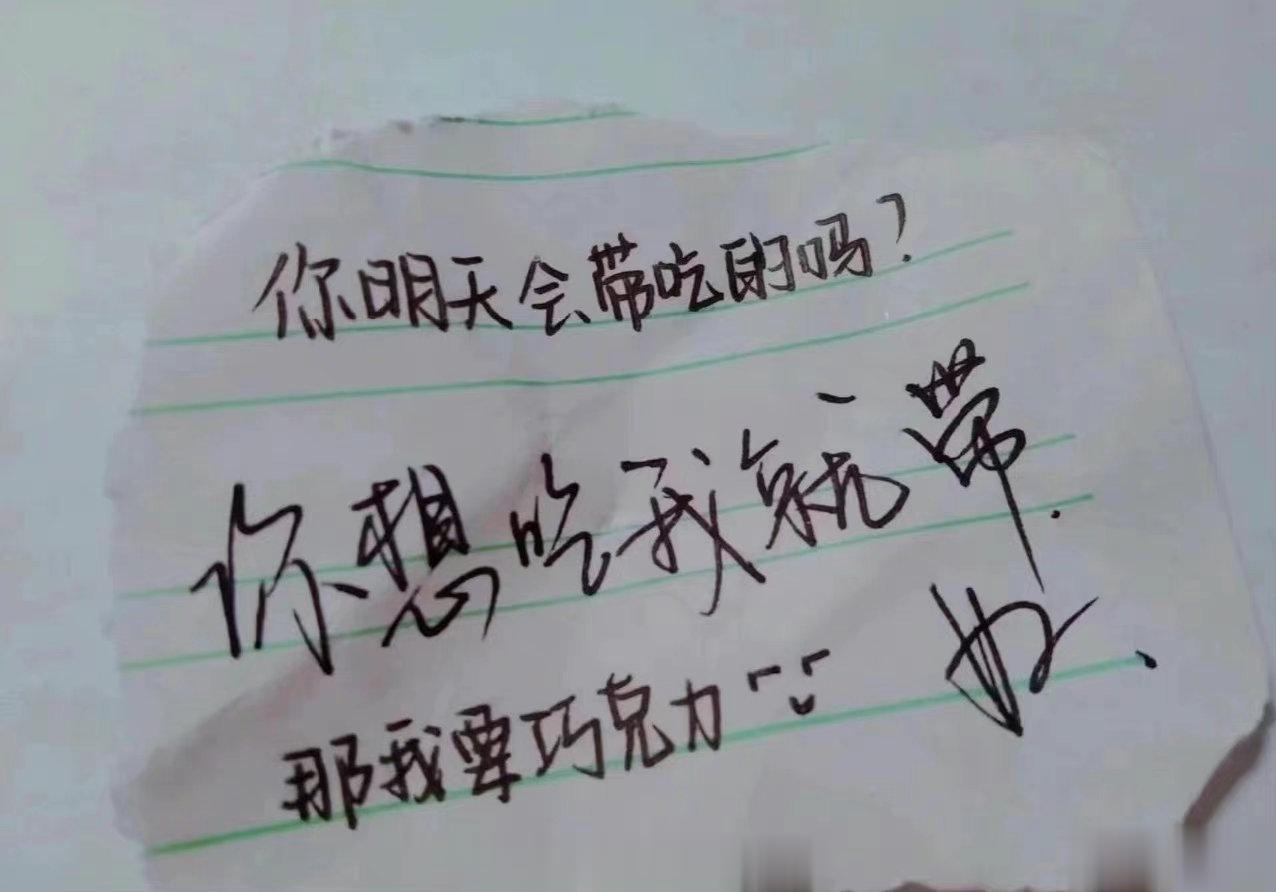 你明天会带吃的吗?
你想吃我就带.
那我要巧克力
好、